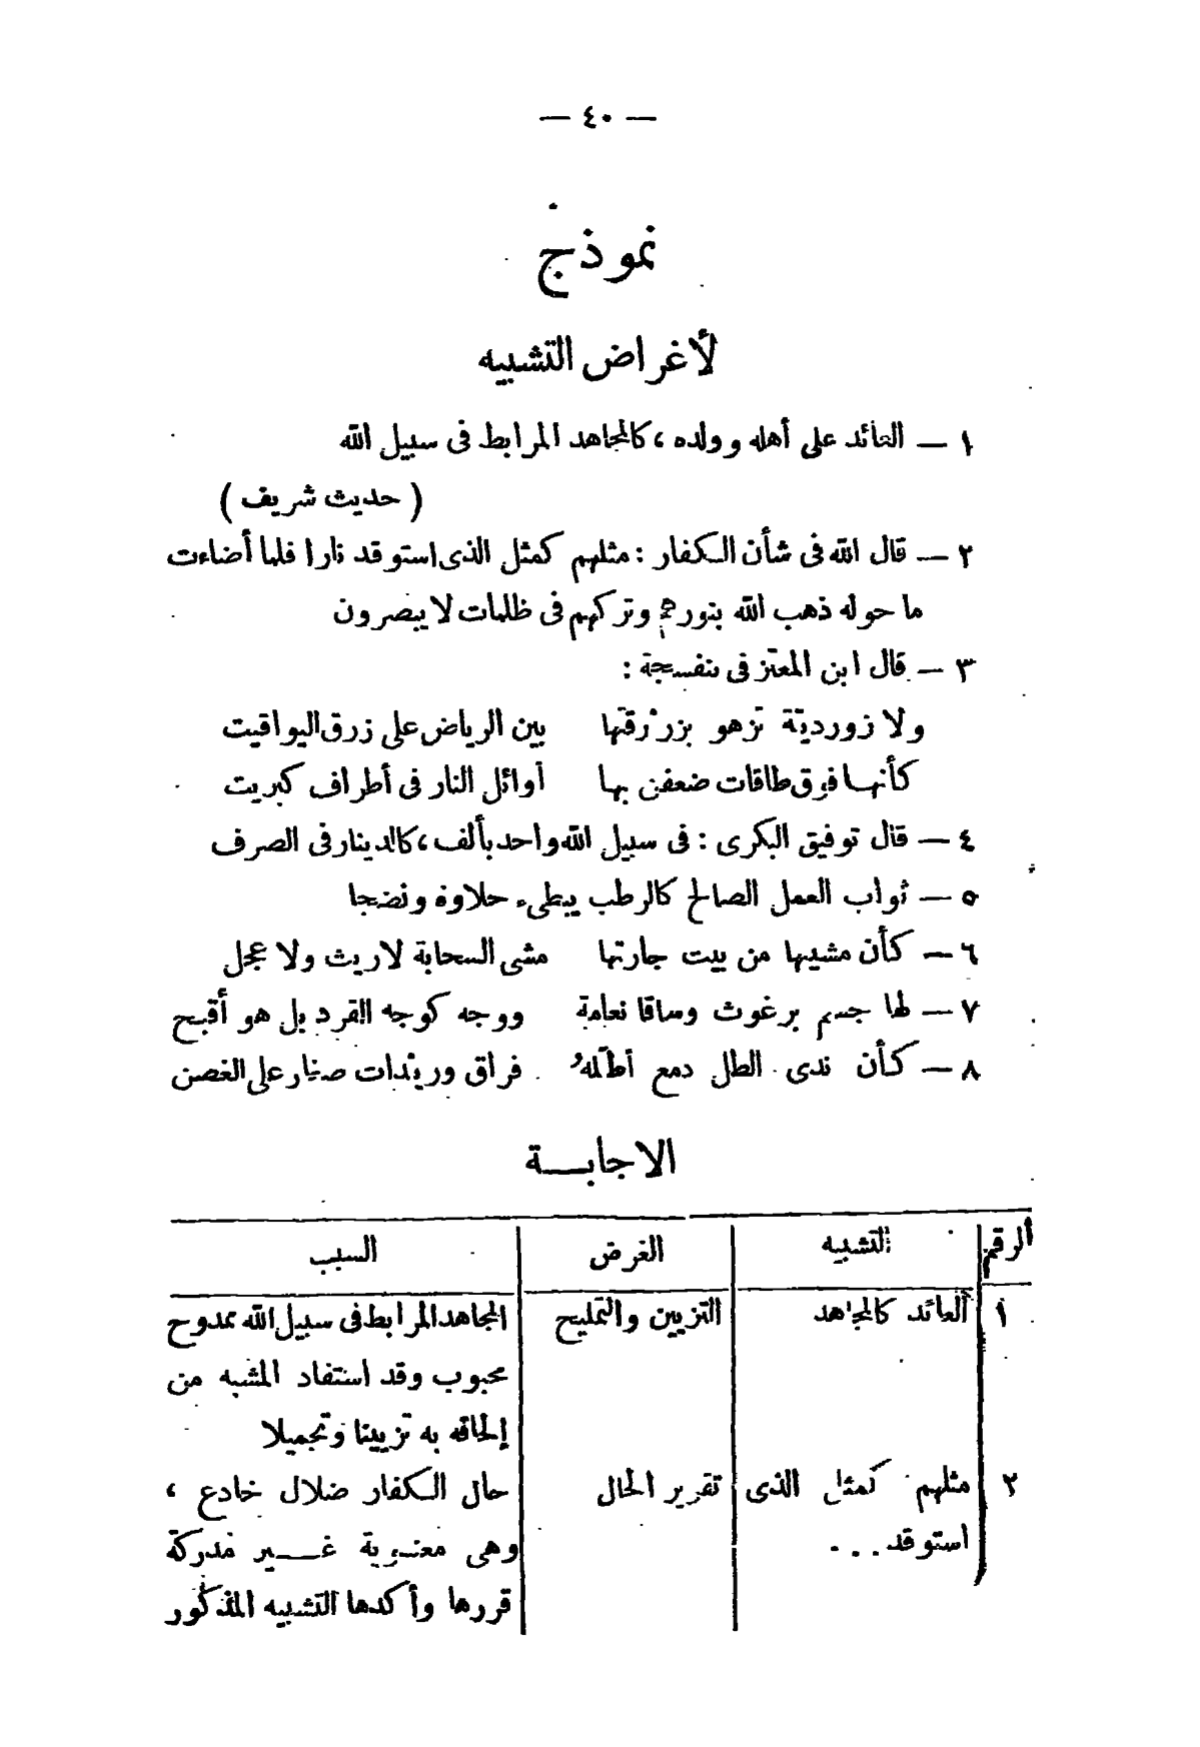 — ٤٠ —
نموذج
لأغراض التشبيه
١ — العائد على أهله وولده ، كالمجاهد المرابط فى سبيل الله
( حديث شريف )
٢ — قال الله فى شأن الكفار : مثلهم كمثل الذى استوقد نارا فلما أضاءت
ما حوله ذهب الله بنورهم وتركهم فى ظلمات لا يبصرون
٣ — قال ابن المعتز فى بنفسجة :
ولا زورديّة تزهو بزرْرقتها بين الرياض على زرق اليواقيت
كأنها فوق طاقات ضعفن بها أوائل النار فى أطراف كبريت
٤ — قال توفيق البكرى : فى سبيل الله واحد بألف ، كالدينار فى الصرف
٥ — ثواب العمل الصالح كالرطب يبطىء حلاوة ونضجا
٦ — كأن مشيها من بيت جارتها مشى السحابة لا ريث ولا عجل
٧ — لها جسم برغوث وساقا نعامة ووجه كوجه القرد بل هو أقبح
٨ — كأن ندى الطل دمع أطلّهُ فراق وريْدات صغار على الغصن
الاجابــة
الرقم | التشبيه | الغرض | السبب
١ | العائد كالمجاهد | التزيين والتمليح | المجاهد المرابط فى سبيل الله ممدوح
محبوب وقد استفاد المشبه من
إلحاقه به تزيينا وتجميلا
٢ | مثلهم كمثل الذى | تقرير الحال | حال الكفار ضلال خادع ،
استوقد . . . | وهى معنوية غــير مدركة
قررها وأكدها التشبيه المذكور